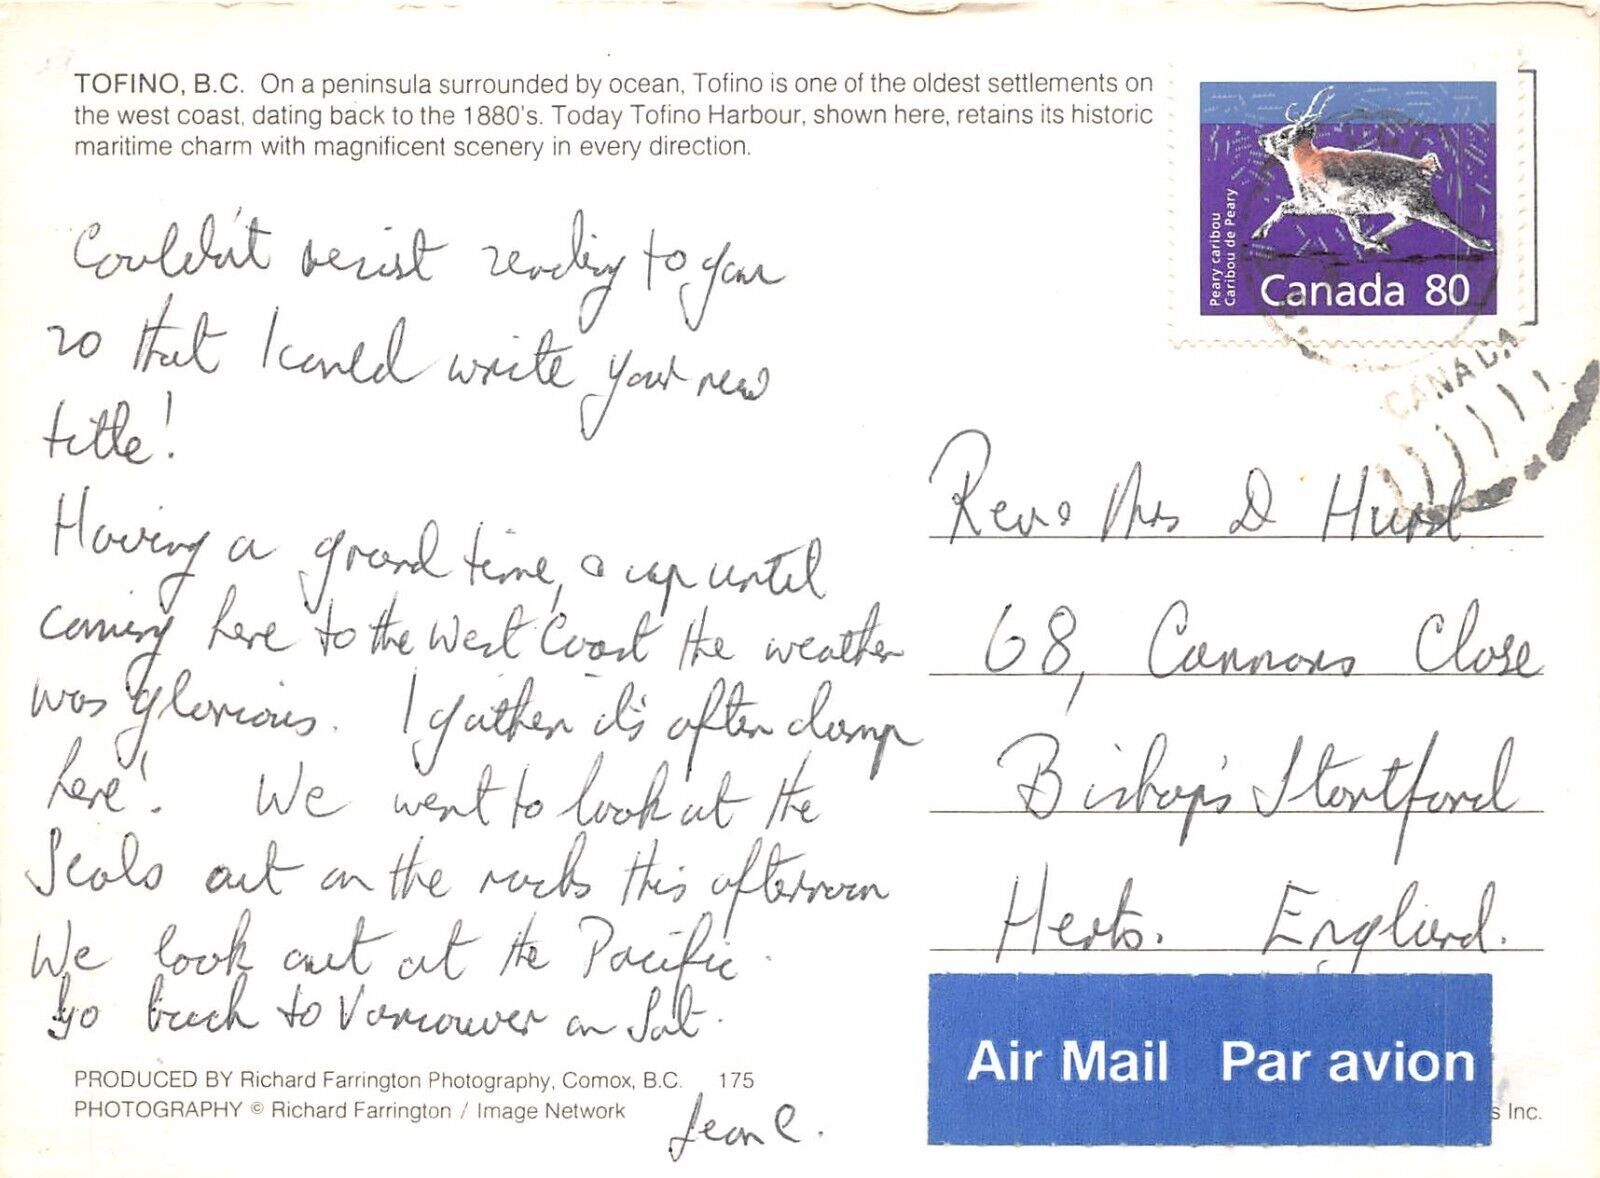 TOFINO, B.C. On a peninsula surrounded by ocean, Tofino is one of the oldest settlements on
the west coast, dating back to the 1880's. Today Tofino Harbour, shown here, retains its historic
maritime charm with magnificent scenery in every direction.
Peary caribou
Caribou de Peary
Canada 80
CANADA
Couldn't resist sending to you
so that I could write your new
title!
Having a grand time, & up until
coming here to the West Coast the weather
was glorious. I gather it's often damp
here! We went to look at the
Seals out on the rocks this afternoon
We look out at the Pacific.
Go back to Vancouver on Sat.
Jean C.
Rev & Mrs D Hurst
68, Cannons Close
Bishop's Stortford
Herts. England.
Air Mail Par avion
PRODUCED BY Richard Farrington Photography, Comox, B.C. 175
PHOTOGRAPHY © Richard Farrington / Image Network
s Inc.